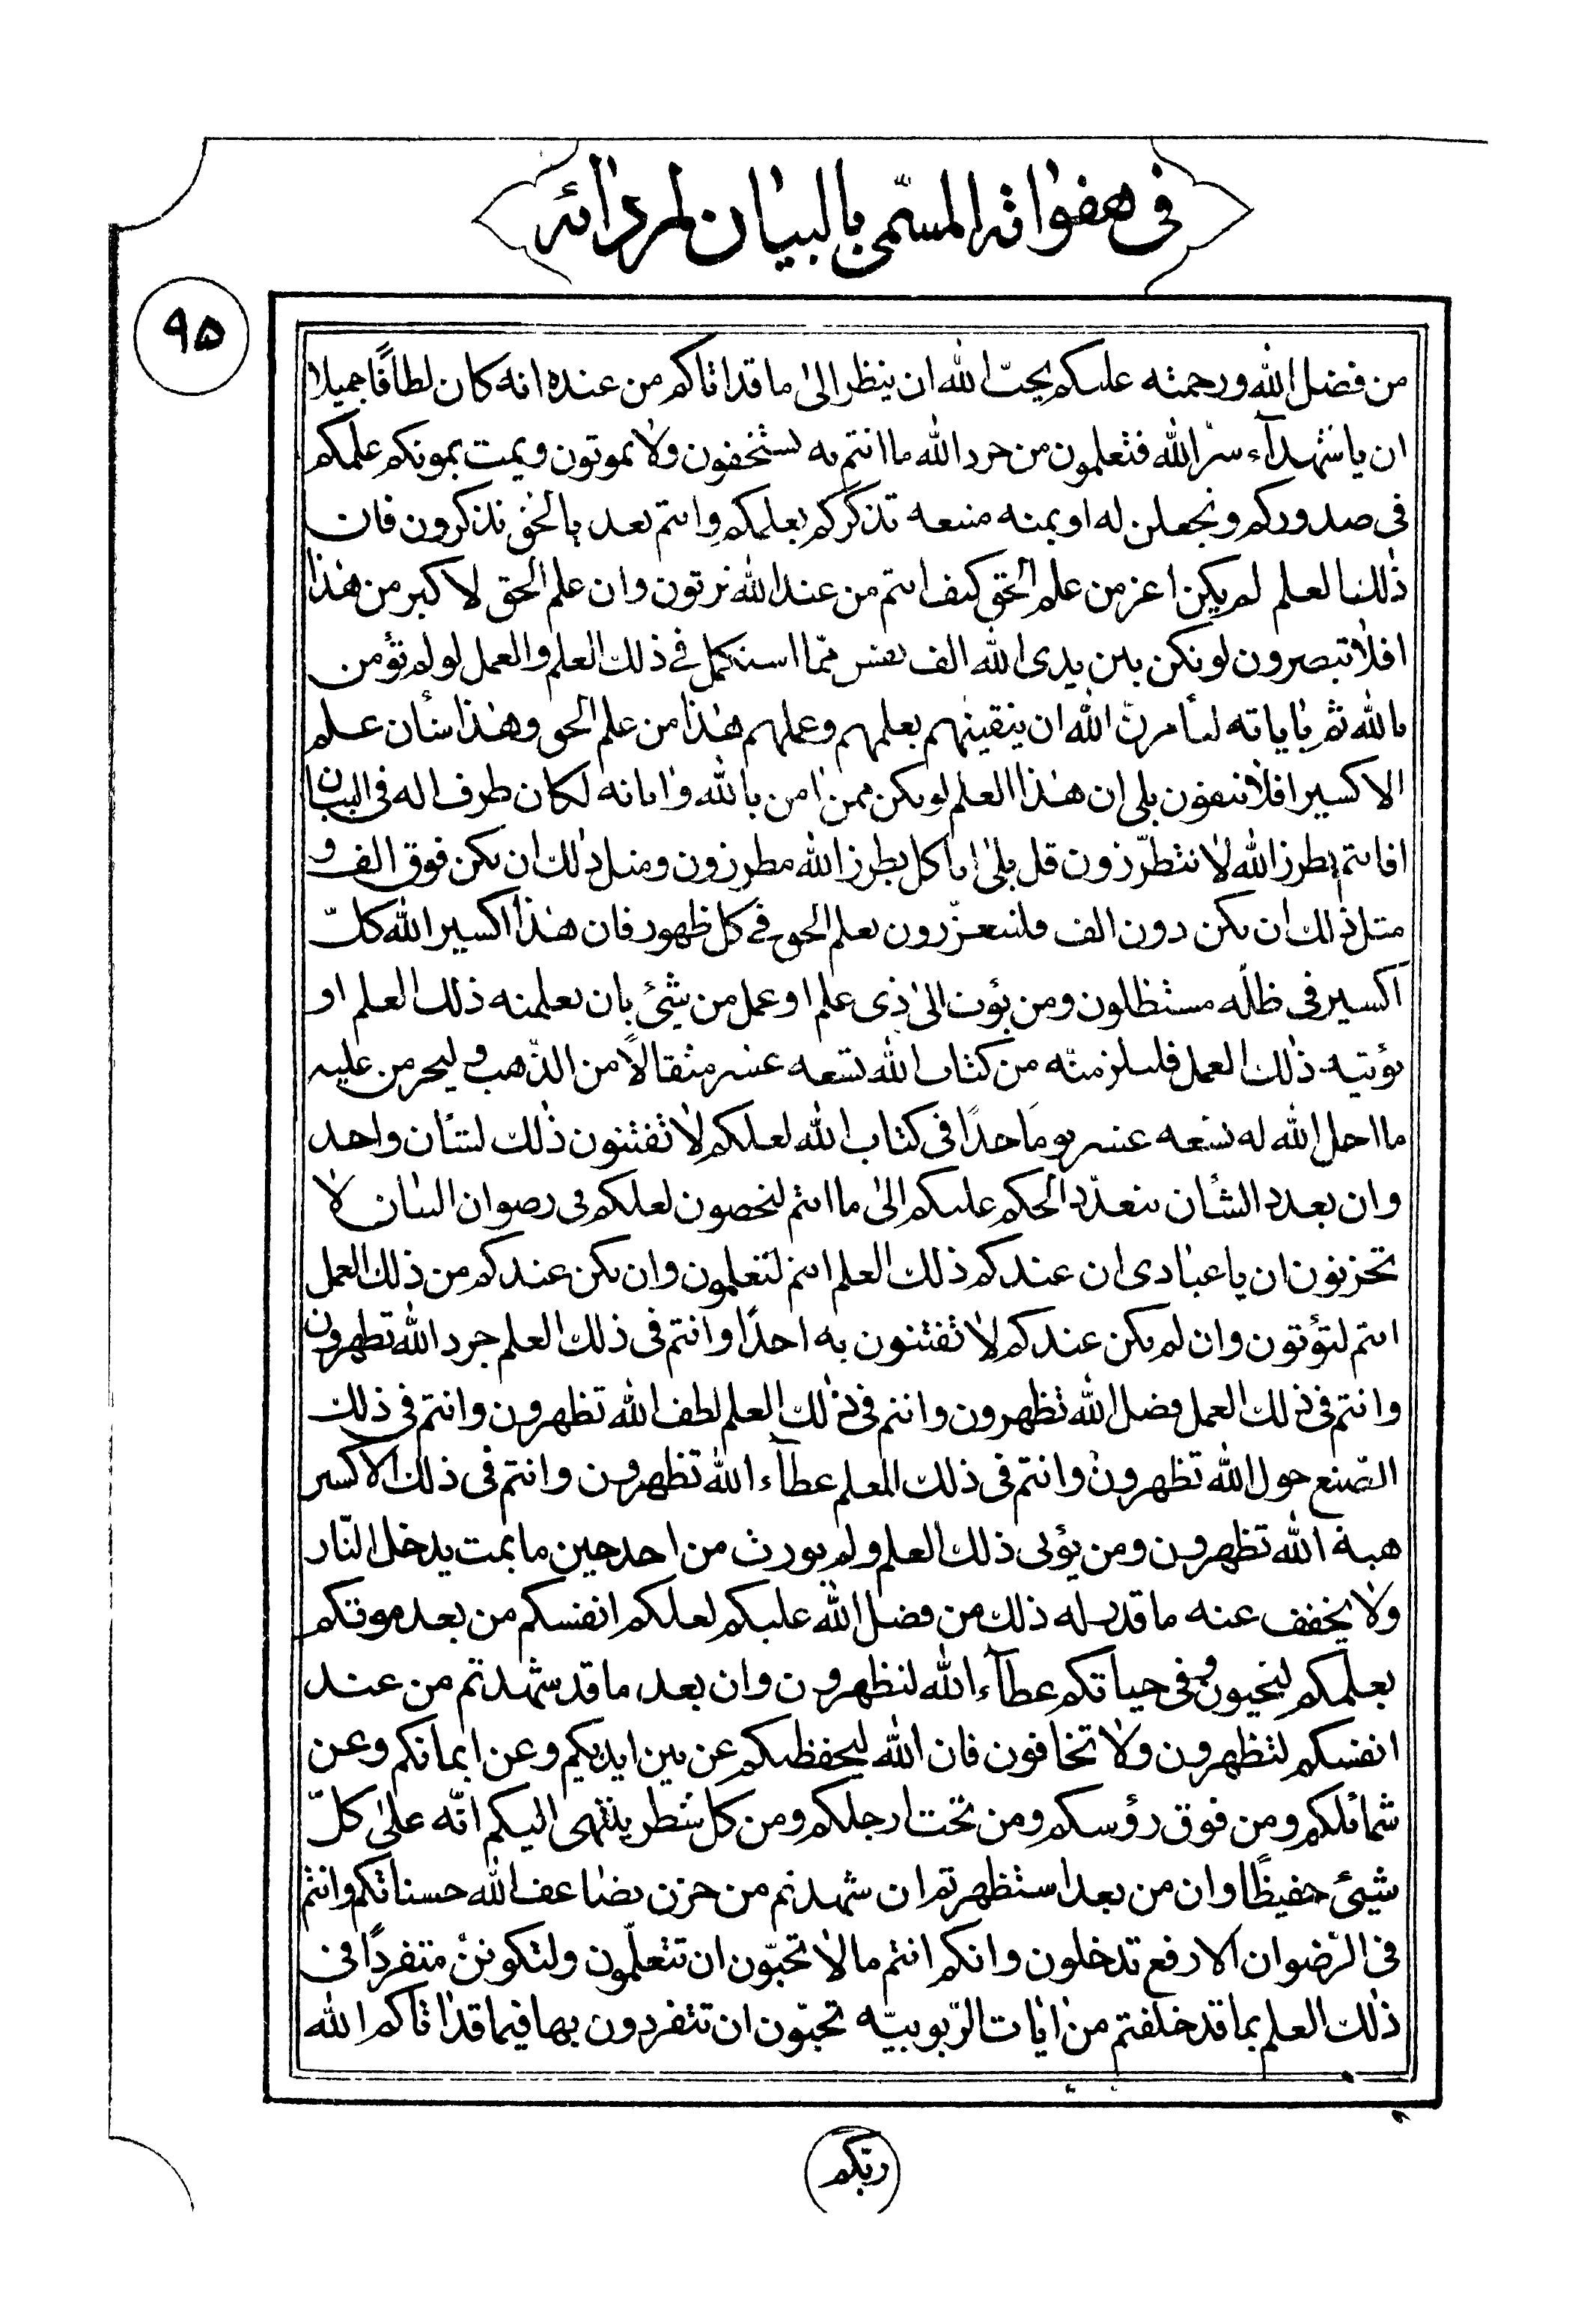 فى هفواته المسمّى بالبيان لمردائه
٩٥
من فضل الله ورحمته عليكم يحبّ الله ان ينظر الىٰ ما قد اتاكم من عنده انه كان لطافًا جميلا
ان يا شهدآء سرّ الله فتعلمون من حرد الله ما انتم به تستخفون ولا تموتون ويمت بموتكم علمكم
فى صدوركم ونجعلن له او يمنه منيعه تذكركم بعلمكم وانتم بعد بالحق تذكرون فان
ذٰلك العلم لم يكن اعز من علم الحق كيف انتم من عند الله ترتون وان علم الحق لاكبر من هٰذا
افلا تبصرون لو تكن بين يدى الله الف نفس ممّا استكمل فى ذلك العلم والعمل لو لم تؤمن
بالله ثم باياته ليأمرنّ الله ان ينقينهم بعلمهم وعملهم هٰذا من علم الحق وهٰذا شأن علم
الاكسير افلا تتقون بلى ان هٰذا العلم لو يكن ممن اٰمن بالله واٰياته لكان طرف اله فى البيان
افانتم بطرز الله لا تتطرّزون قل بلىٰ انا كل بطرز الله مطرزون ومثل ذلك ان يكن فوق الف و
مثل ذلك ان يكن دون الف فلتتعزّرون بعلم الحق فى كل ظهور فان هٰذا اكسير الله كلّ
اكسير فى ظلّه مستظلون ومن يؤت الىٰ ذى علم او عمل من شئ بان يعلمنه ذلك العلم او
يؤتيه ذٰلك العمل فليلزمنّه من كتاب الله تسعه عشر مثقالًا من الذّهب وليحرمن عليه
ما احل الله له تسعه عشر يومًا حدًا فى كتاب الله لعلكم لا تفتنون ذٰلك لشأن واحد
وان يعدد الشأن يتعدّد الحكم عليكم الىٰ ما انتم لتحصون لعلكم فى رضوان البيان لا
تحزنون ان يا عبادى ان عندكم ذلك العلم انتم لتعلمون وان يكن عندكم من ذلك العمل
انتم لتؤتون وان لم يكن عندكم لا تفتنون به احدًا وانتم فى ذلك العلم جرد الله تظهرون
وانتم فى ذلك العمل فضل الله تظهرون وانتم فى ذٰلك العلم لطف الله تظهرون وانتم فى ذلك
الصّنع حول الله تظهرون وانتم فى ذلك المعلم عطآء الله تظهرون وانتم فى ذلك الاكسير
هبة الله تظهرون ومن يؤتى ذلك العلم ولم يورث من احد حين ما يمت يدخل النّار
ولا يخفف عنه ما قدر له ذلك من فضل الله عليكم لعلكم انفسكم من بعد موتكم
بعلمكم لتحيون وفى حياتكم عطآء الله لتظهرون وان بعد ما قد شهدتم من عند
انفسكم لتظهرون ولا تخافون فان الله ليحفظكم عن بين ايديكم وعن ايمانكم وعن
شمائلكم ومن فوق رؤسكم ومن تحت ارجلكم ومن كل شطر ينتهى اليكم انّه علىٰ كلّ
شيئ حفيظًا وان من بعد استظهرتم ان شهدتم من حزن يضاعف الله حسناتكم وانتم
فى الرّضوان الارفع تدخلون وانكم انتم ما لا تحبّون ان تتعلّمون ولتكوننّ متفردًا فى
ذٰلك العلم بما قد خلفتم من اٰيات الرّبوبيّه تحبّون ان تتفردون بها فيما قد اٰتاكم الله
ربّكم